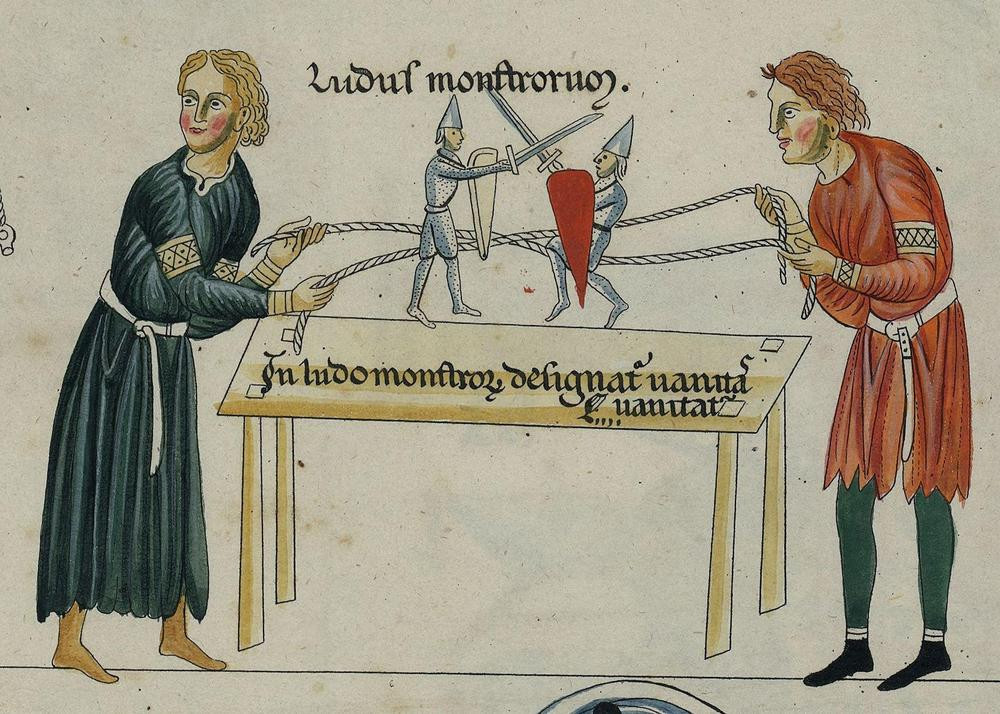 Ludus monstrorum.
In ludo monstroꝝ designat᷑ uanitas
uanitat᷑